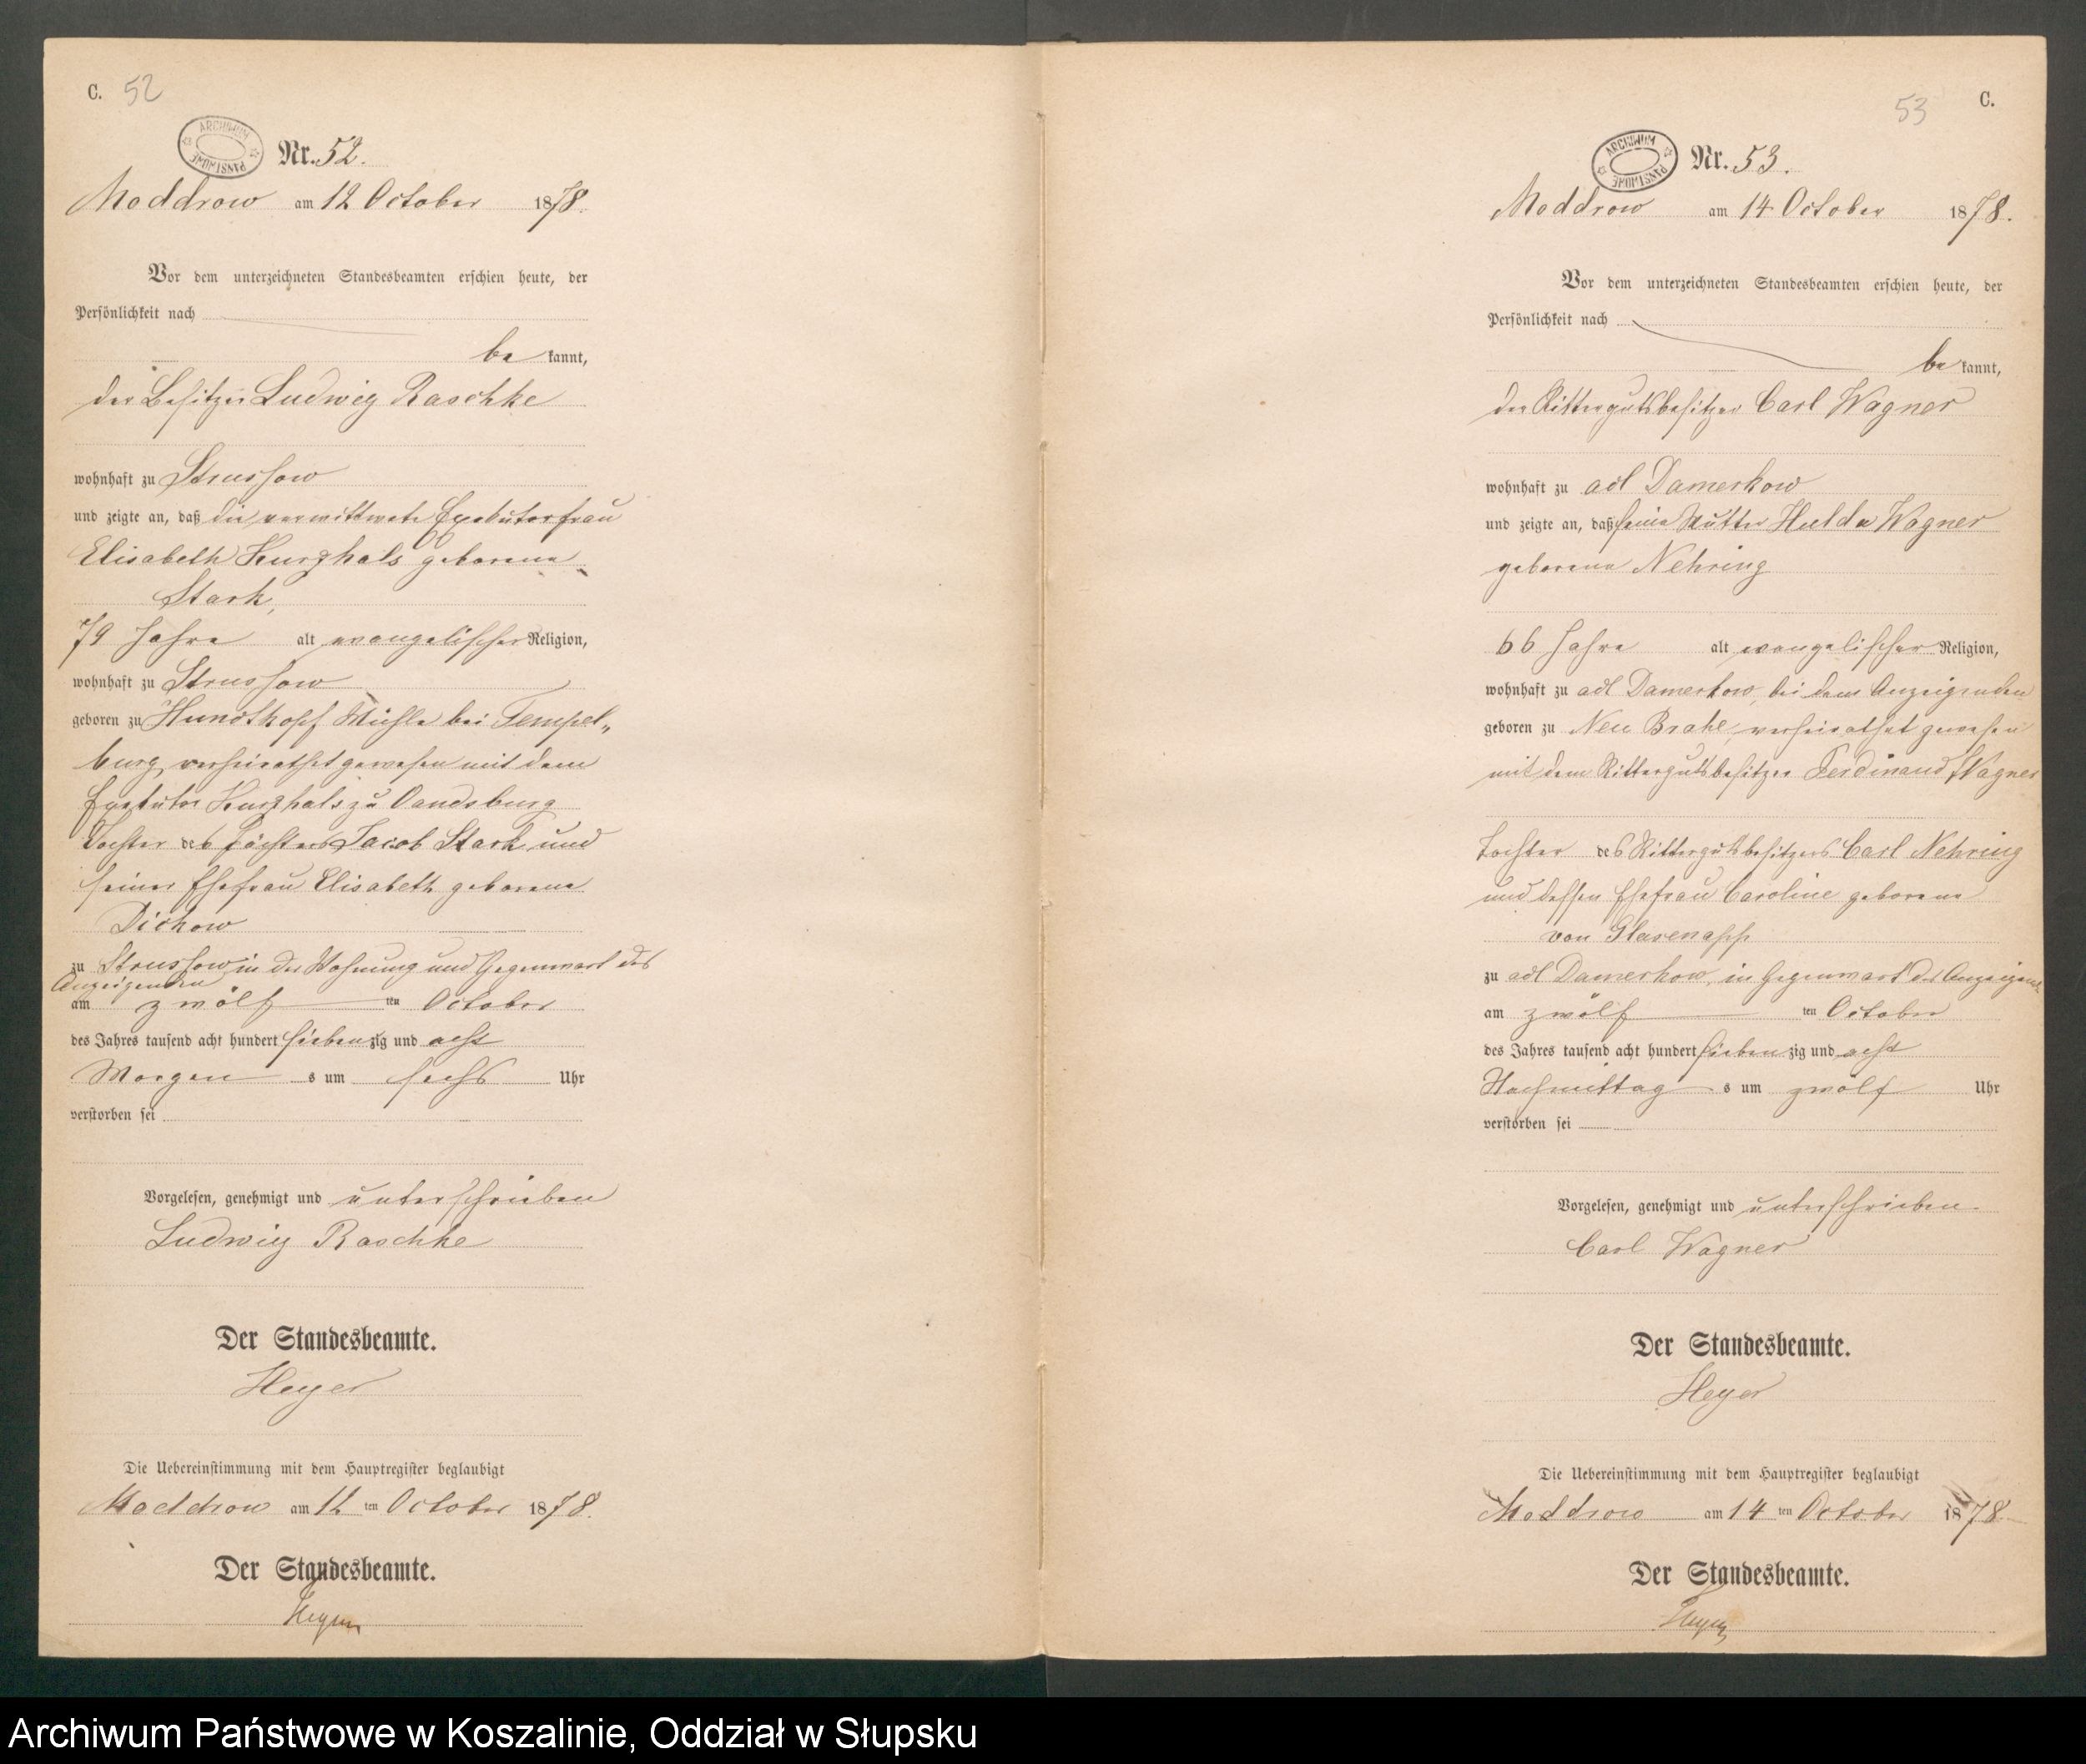 C. 52
ARCHIWUM PAŃSTWOWE
Nr. 52.
Moddrow am 12 October 1878.
Vor dem unterzeichneten Standesbeamten erschien heute, der
Persönlichkeit nach
be kannt,
der Besitzer Ludwig Raschke
wohnhaft zu Strussow
und zeigte an, daß die verwittwete Exekutorfrau
Elisabeth Kurzhals geborene
Stark,
79 Jahre alt evangelischer Religion,
wohnhaft zu Strussow
geboren zu Hundskopf Mühle bei Tempel„
burg, verheirathet gewesen mit dem
Exekutor Kurzhals zu Vandsburg
Tochter des Pächters Jacob Stark und
seiner Ehefrau Elisabeth geborene
Dickow
zu Strussow in der Wohnung und Gegenwart des
Anzeigenden
am zwölf ten October
des Jahres tausend acht hundert siebenzig und acht
Morgen s um sechs Uhr
verstorben sei
Vorgelesen, genehmigt und unterschrieben
Ludwig Raschke
Der Standesbeamte.
Heyer
Die Uebereinstimmung mit dem Hauptregister beglaubigt
Moddrow am 12 ten October 1878.
Der Standesbeamte.
Heyer
53 C.
ARCHIWUM PAŃSTWOWE
Nr. 53.
Moddrow am 14 October 1878.
Vor dem unterzeichneten Standesbeamten erschien heute, der
Persönlichkeit nach
be kannt,
der Rittergutsbesitzer Carl Wagner
wohnhaft zu adl Damerkow
und zeigte an, daß seine Mutter Hulda Wagner
geborene Nehring
66 Jahre alt evangelischer Religion,
wohnhaft zu adl Damerkow, bei dem Anzeigenden
geboren zu Neu Brahe, verheirathet gewesen
mit dem Rittergutsbesitzer Ferdinand Wagner
Tochter des Rittergutsbesitzers Carl Nehring
und dessen Ehefrau Caroline geborene
von Glasenapp
zu adl Damerkow, in Gegenwart des Anzeigend.
am zwölf ten October
des Jahres tausend acht hundert sieben zig und acht
Nachmittag s um zwölf Uhr
verstorben sei
Vorgelesen, genehmigt und unterschrieben.
Carl Wagner
Der Standesbeamte.
Heyer
Die Uebereinstimmung mit dem Hauptregister beglaubigt
Moddrow am 14 ten October 1878.
Der Standesbeamte.
Heyer
Archiwum Państwowe w Koszalinie, Oddział w Słupsku